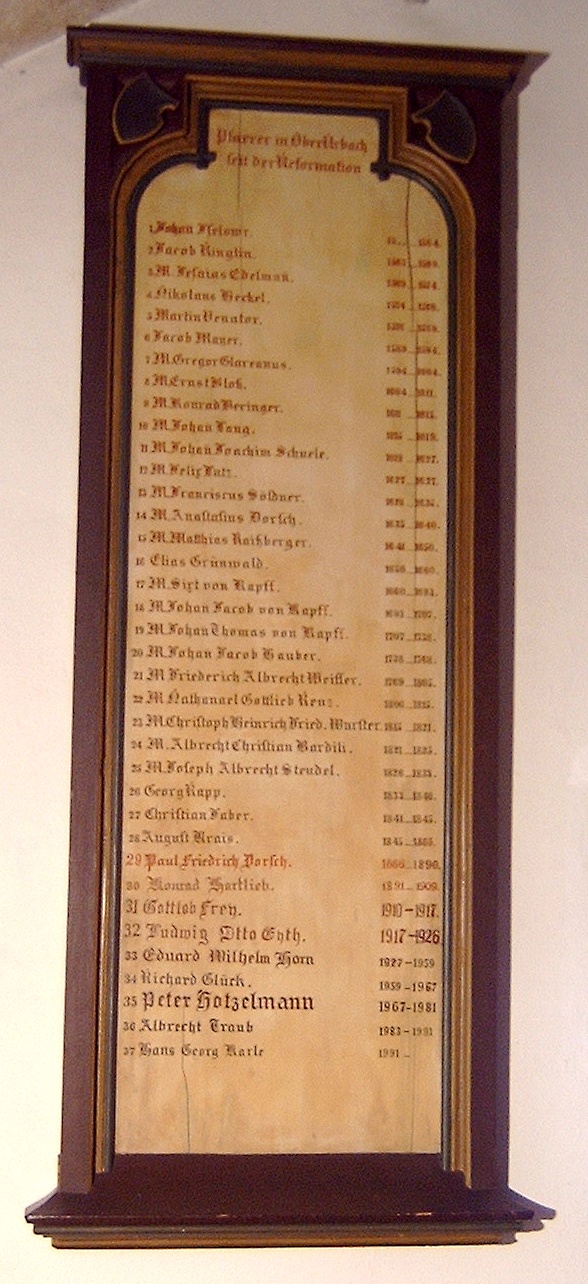 Pfarrer in OberUrbach
seit der Reformation
1 Johan 1564.
2 Jacob Ringlin.
3 M. Jesaias Edelman.
4 Nikolaus Heckel.
5 Martin Venator.
6 Jacob Mayer.
7 M. Gregor Glareanus.
8 M. Ernst
9 M. Konrad Beringer.
10 M. Johan Lang.
11 M. Johan Joachim Schuele. 1627.
12 M. Felix Lutz. 1627.
13 M. Franciscus Söldner.
14 M. Anastasius Dorsch. 1635 1640.
15 M. Matthias Raißberger. 1641 1650.
16 Elias Grünwald. 1650 1660.
17 M. Sixt von Kapff. 1660 1693.
18 M. Johan Jacob von Kapff. 1693 1707.
19 M. Johan Thomas von Kapff. 1707 1738.
20 M. Johan Jacob Hauber. 1738 1768.
21 M. Friederich Albrecht Weisser. 1769 1805.
22 M. Nathanael Gottlieb Renz. 1806 1815.
23 M. Christoph Heinrich Fried. Wurster. 1815 1821.
24 M. Albrecht Christian Bardili. 1821 1825.
25 M. Joseph Albrecht Steudel. 1826 1833.
26 Georg Rapp. 1833 1840.
27 Christian Faber. 1841 1845.
28 August Krais. 1845 1865.
29 Paul Friedrich Dorsch. 1866 1890.
30 Konrad Hartlieb. 1891 1909.
31 Gottlob Frey. 1910-1917.
32 Ludwig Otto Eyth. 1917-1926
33 Eduard Wilhelm Horn 1927-1959
34 Richard Glück. 1959-1967
35 Peter Hotzelmann 1967-1981
36 Albrecht Traub 1983-1991
37 Hans Georg Karle 1991-